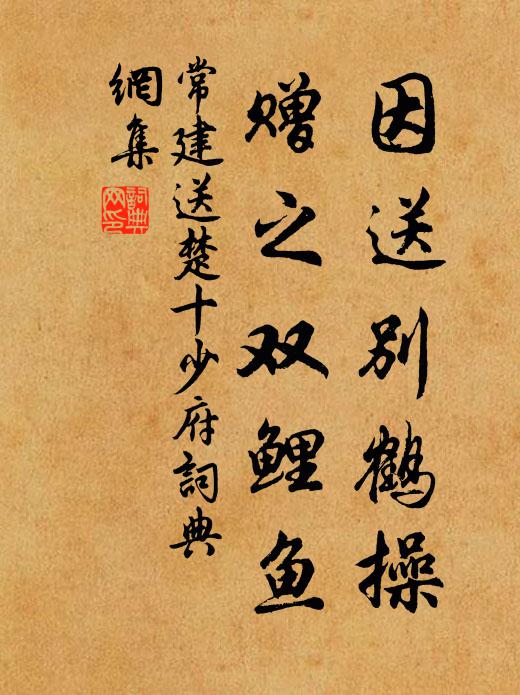 因送别鹤操
赠之双鲤鱼
常建送楚十少府詞典
網集
詞典
网印